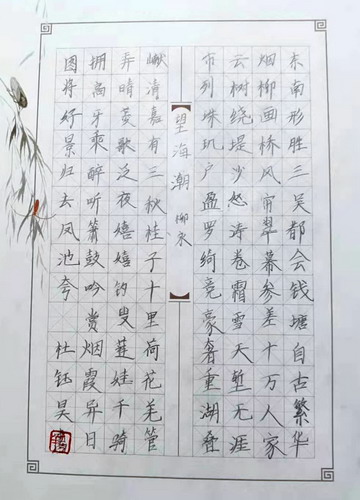 东南形胜三吴都会钱塘自古繁华
烟柳画桥风帘翠幕参差十万人家
云树绕堤沙怒涛卷霜雪天堑无涯
市列珠玑户盈罗绮竞豪奢重湖叠
望海潮 柳永
巘清嘉有三秋桂子十里荷花羌管
弄晴菱歌泛夜嬉嬉钓叟莲娃千骑
拥高牙乘醉听箫鼓吟赏烟霞异日
图将好景归去凤池夸 杜钰昊